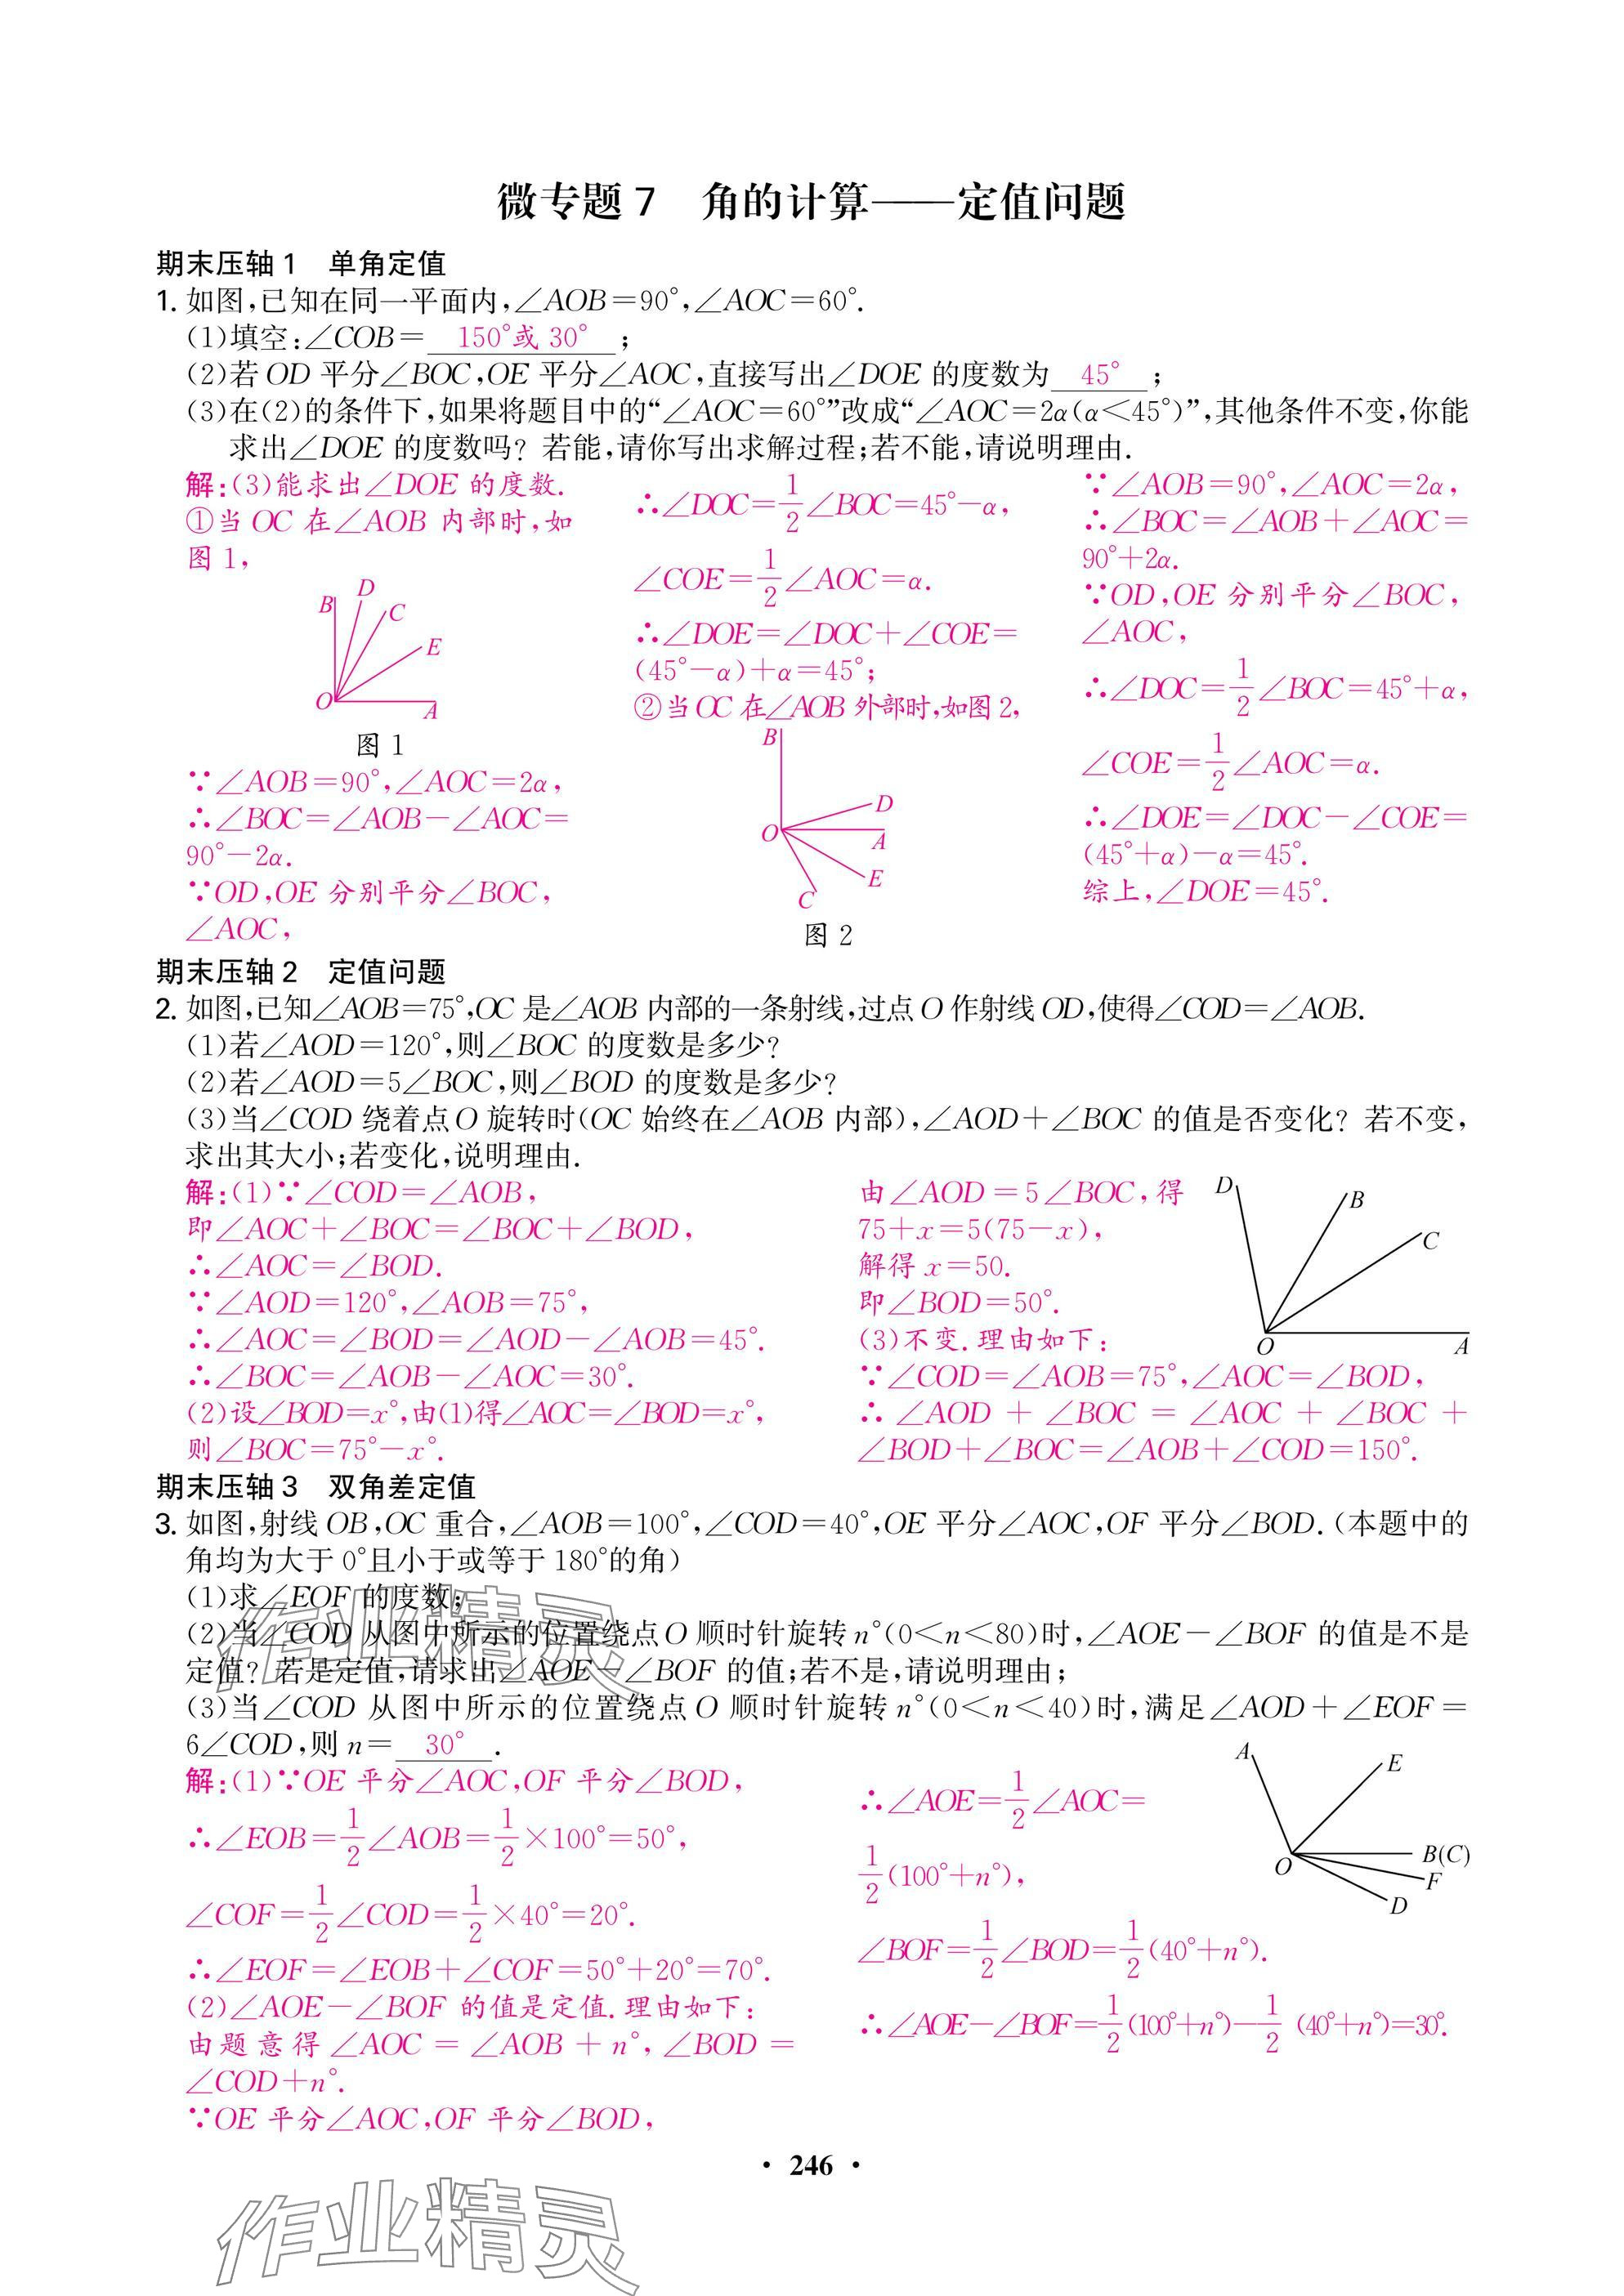 微专题7 角的计算——定值问题
期末压轴1 单角定值
1. 如图,已知在同一平面内,∠AOB=90°,∠AOC=60°.
(1)填空:∠COB= 150°或30° ;
(2)若OD平分∠BOC,OE平分∠AOC,直接写出∠DOE的度数为 45° ;
(3)在(2)的条件下,如果将题目中的“∠AOC=60°”改成“∠AOC=2α(α<45°)”,其他条件不变,你能
求出∠DOE的度数吗? 若能,请你写出求解过程;若不能,请说明理由.
解:(3)能求出∠DOE的度数.
①当OC在∠AOB内部时,如
图1,
B
D
C
E
O
A
图1
∵∠AOB=90°,∠AOC=2α,
∴∠BOC=∠AOB-∠AOC=
90°-2α.
∵OD,OE分别平分∠BOC,
∠AOC,
∴∠DOC=1/2∠BOC=45°-α,
∠COE=1/2∠AOC=α.
∴∠DOE=∠DOC+∠COE=
(45°-α)+α=45°;
②当OC在∠AOB外部时,如图2,
B
D
O
A
E
C
图2
∵∠AOB=90°,∠AOC=2α,
∴∠BOC=∠AOB+∠AOC=
90°+2α.
∵OD,OE分别平分∠BOC,
∠AOC,
∴∠DOC=1/2∠BOC=45°+α,
∠COE=1/2∠AOC=α.
∴∠DOE=∠DOC-∠COE=
(45°+α)-α=45°.
综上,∠DOE=45°.
期末压轴2 定值问题
2. 如图,已知∠AOB=75°,OC是∠AOB内部的一条射线,过点O作射线OD,使得∠COD=∠AOB.
(1)若∠AOD=120°,则∠BOC的度数是多少?
(2)若∠AOD=5∠BOC,则∠BOD的度数是多少?
(3)当∠COD绕着点O旋转时(OC始终在∠AOB内部),∠AOD+∠BOC的值是否变化? 若不变,
求出其大小;若变化,说明理由.
解:(1)∵∠COD=∠AOB,
即∠AOC+∠BOC=∠BOC+∠BOD,
∴∠AOC=∠BOD.
∵∠AOD=120°,∠AOB=75°,
∴∠AOC=∠BOD=∠AOD-∠AOB=45°.
∴∠BOC=∠AOB-∠AOC=30°.
(2)设∠BOD=x°,由(1)得∠AOC=∠BOD=x°,
则∠BOC=75°-x°.
由∠AOD=5∠BOC,得
75+x=5(75-x),
解得x=50.
即∠BOD=50°.
(3)不变.理由如下:
∵∠COD=∠AOB=75°,∠AOC=∠BOD,
∴∠AOD+∠BOC=∠AOC+∠BOC+
∠BOD+∠BOC=∠AOB+∠COD=150°.
D
B
C
O
A
期末压轴3 双角差定值
3. 如图,射线OB,OC重合,∠AOB=100°,∠COD=40°,OE平分∠AOC,OF平分∠BOD.(本题中的
角均为大于0°且小于或等于180°的角)
(1)求∠EOF的度数;
(2)当∠COD从图中所示的位置绕点O顺时针旋转n°(0<n<80)时,∠AOE-∠BOF的值是不是
定值? 若是定值,请求出∠AOE-∠BOF的值;若不是,请说明理由;
(3)当∠COD从图中所示的位置绕点O顺时针旋转n°(0<n<40)时,满足∠AOD+∠EOF=
6∠COD,则n= 30° .
解:(1)∵OE平分∠AOC,OF平分∠BOD,
∴∠EOB=1/2∠AOB=1/2×100°=50°,
∠COF=1/2∠COD=1/2×40°=20°.
∴∠EOF=∠EOB+∠COF=50°+20°=70°.
(2)∠AOE-∠BOF的值是定值.理由如下:
由题意得∠AOC=∠AOB+n°,∠BOD=
∠COD+n°.
∵OE平分∠AOC,OF平分∠BOD,
∴∠AOE=1/2∠AOC=
1/2(100°+n°),
∠BOF=1/2∠BOD=1/2(40°+n°).
∴∠AOE-∠BOF=1/2(100°+n°)-1/2(40°+n°)=30°.
A
E
O
B(C)
F
D
· 246 ·
作业精灵
作业精灵